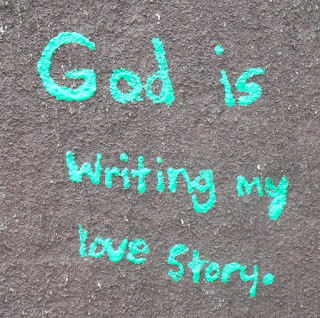 God is
Writing my
love Story.